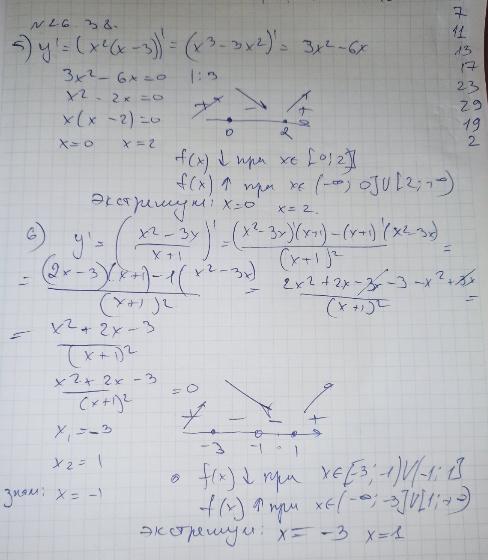 №26.38.
5) y' = (x²(x-3))' = (x³-3x²)' = 3x²-6x
3x²-6x=0 |:3
x²-2x=0
x(x-2)=0
x=0 x=2
+ - +
0 2
f(x) ↓ при x∈[0;2]
f(x) ↑ при x∈(-∞; 0]∪[2;+∞)
Экстремум: x=0 x=2.
6) y' = ((x²-3x)/(x+1))' = ((x²-3x)'(x+1)-(x+1)'(x²-3x))/(x+1)² =
= ((2x-3)(x+1)-1(x²-3x))/(x+1)² = (2x²+2x-3x-3-x²+3x)/(x+1)² =
= (x²+2x-3)/(x+1)²
(x²+2x-3)/(x+1)² = 0
x₁=-3
x₂=1
знам: x=-1
+ - - +
-3 -1 1
f(x) ↓ при x∈[-3;-1)∪(-1;1]
f(x) ↑ при x∈(-∞;-3]∪[1;+∞)
Экстремум: x=-3 x=1
7
11
13
17
23
29
19
2